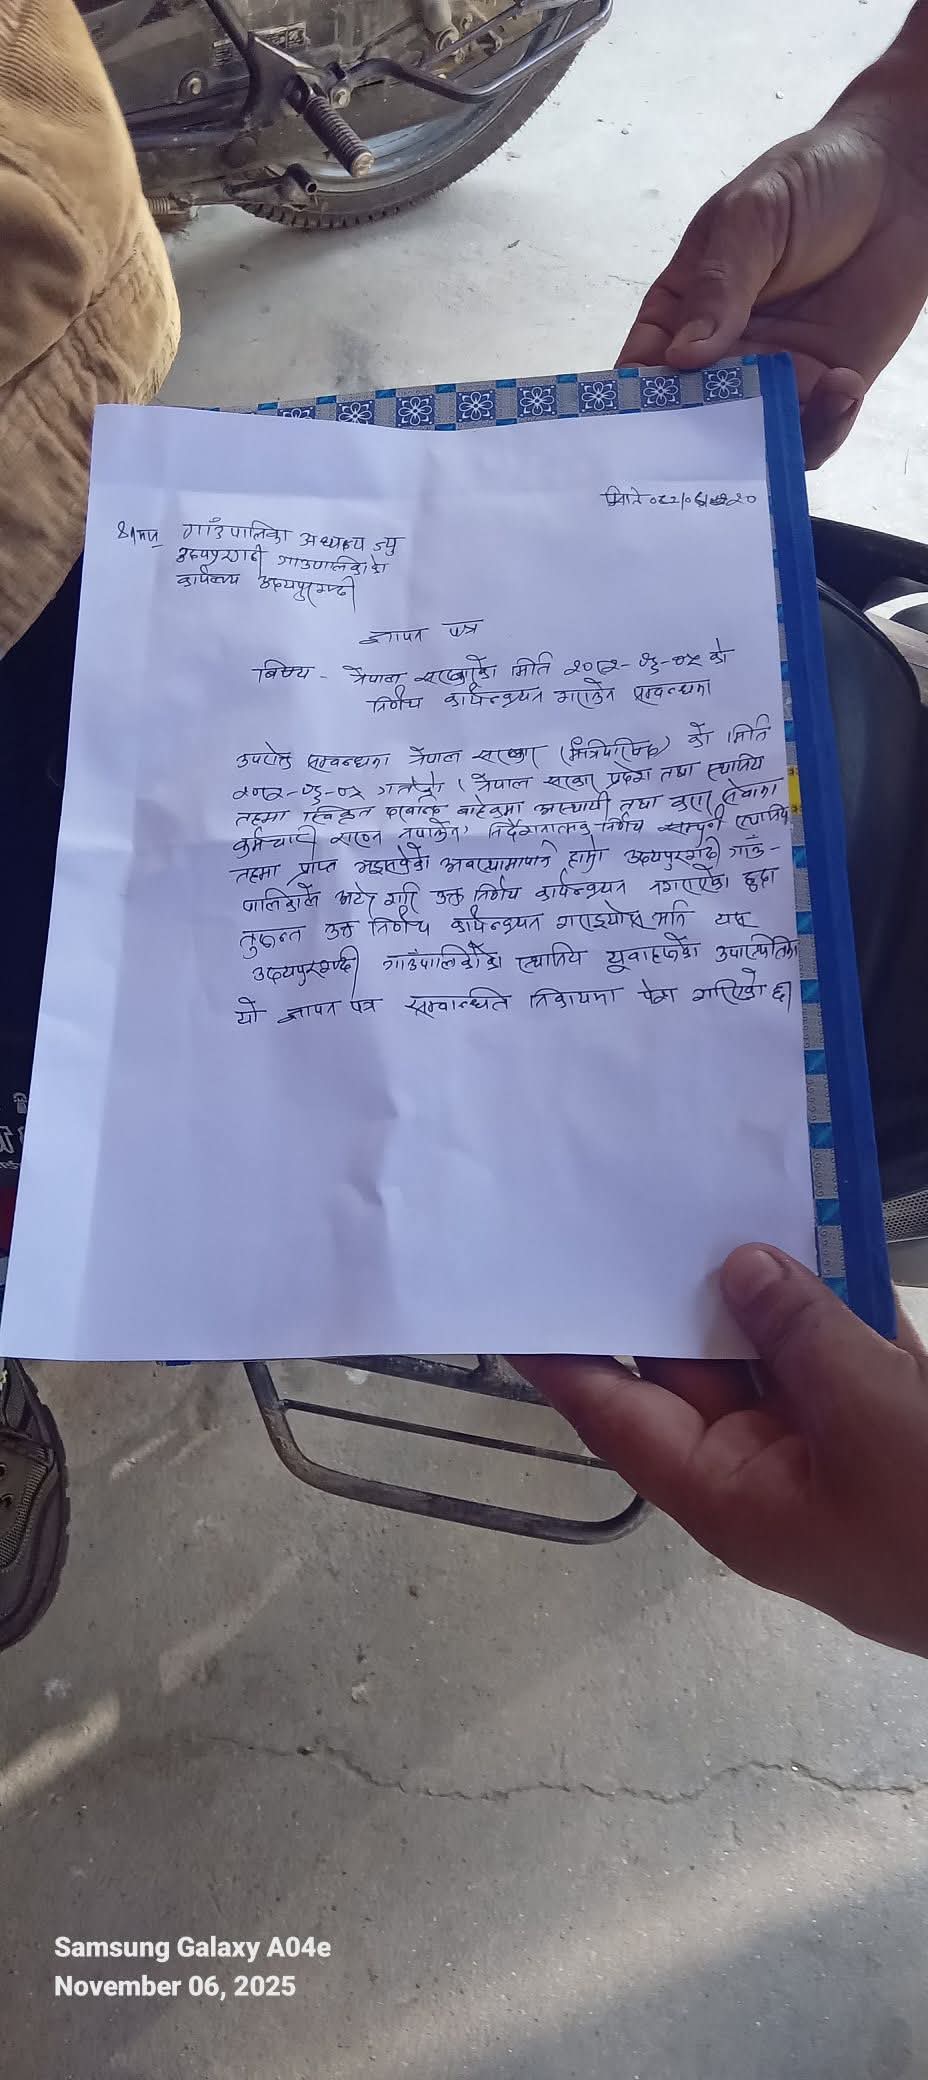 मिति ०८२/०६/२०
श्रीमान् गाउँपालिका अध्यक्ष ज्यु
उदयपुरगढी गाउपालिकाको
कार्यालय उदयपुरगढी
ज्ञापन पत्र
बिषय - नेपाल सरकारको मिति २०८२-०६-०५ को
निर्णय कार्यन्वयन गराउने सम्बन्धमा
उपरोक्त सम्बन्धमा नेपाल सरकार (मंत्रिपरिषद) को मिति
२०८२-०६-०५ गतेको ( नेपाल सरकार प्रदेश तथा स्थानिय
तहमा स्विकृत दरबन्दि बाहेकमा अस्थायी तथा करार सेवामा
कर्मचारी राख्न नपाउने) निर्देशनात्मक निर्णय सम्पुर्ण स्थानिय
तहमा प्राप्त भइसकेको अवस्थामापनि हाम्रो उदयपुरगढी गाउँ-
पालिकाले अटेर गरि उक्त निर्णय कार्यन्वयन नगराएको हुदा
तुरुन्त उक्त निर्णय कार्यन्वयन गराइयोस् भनि यस
उदयपुरगढी गाउँपालिकाको स्थानिय युवाहरुको उपस्थितिमा
यो ज्ञापन पत्र सम्बन्धित निकायमा पेश गरिएको छ।
Samsung Galaxy A04e
November 06, 2025